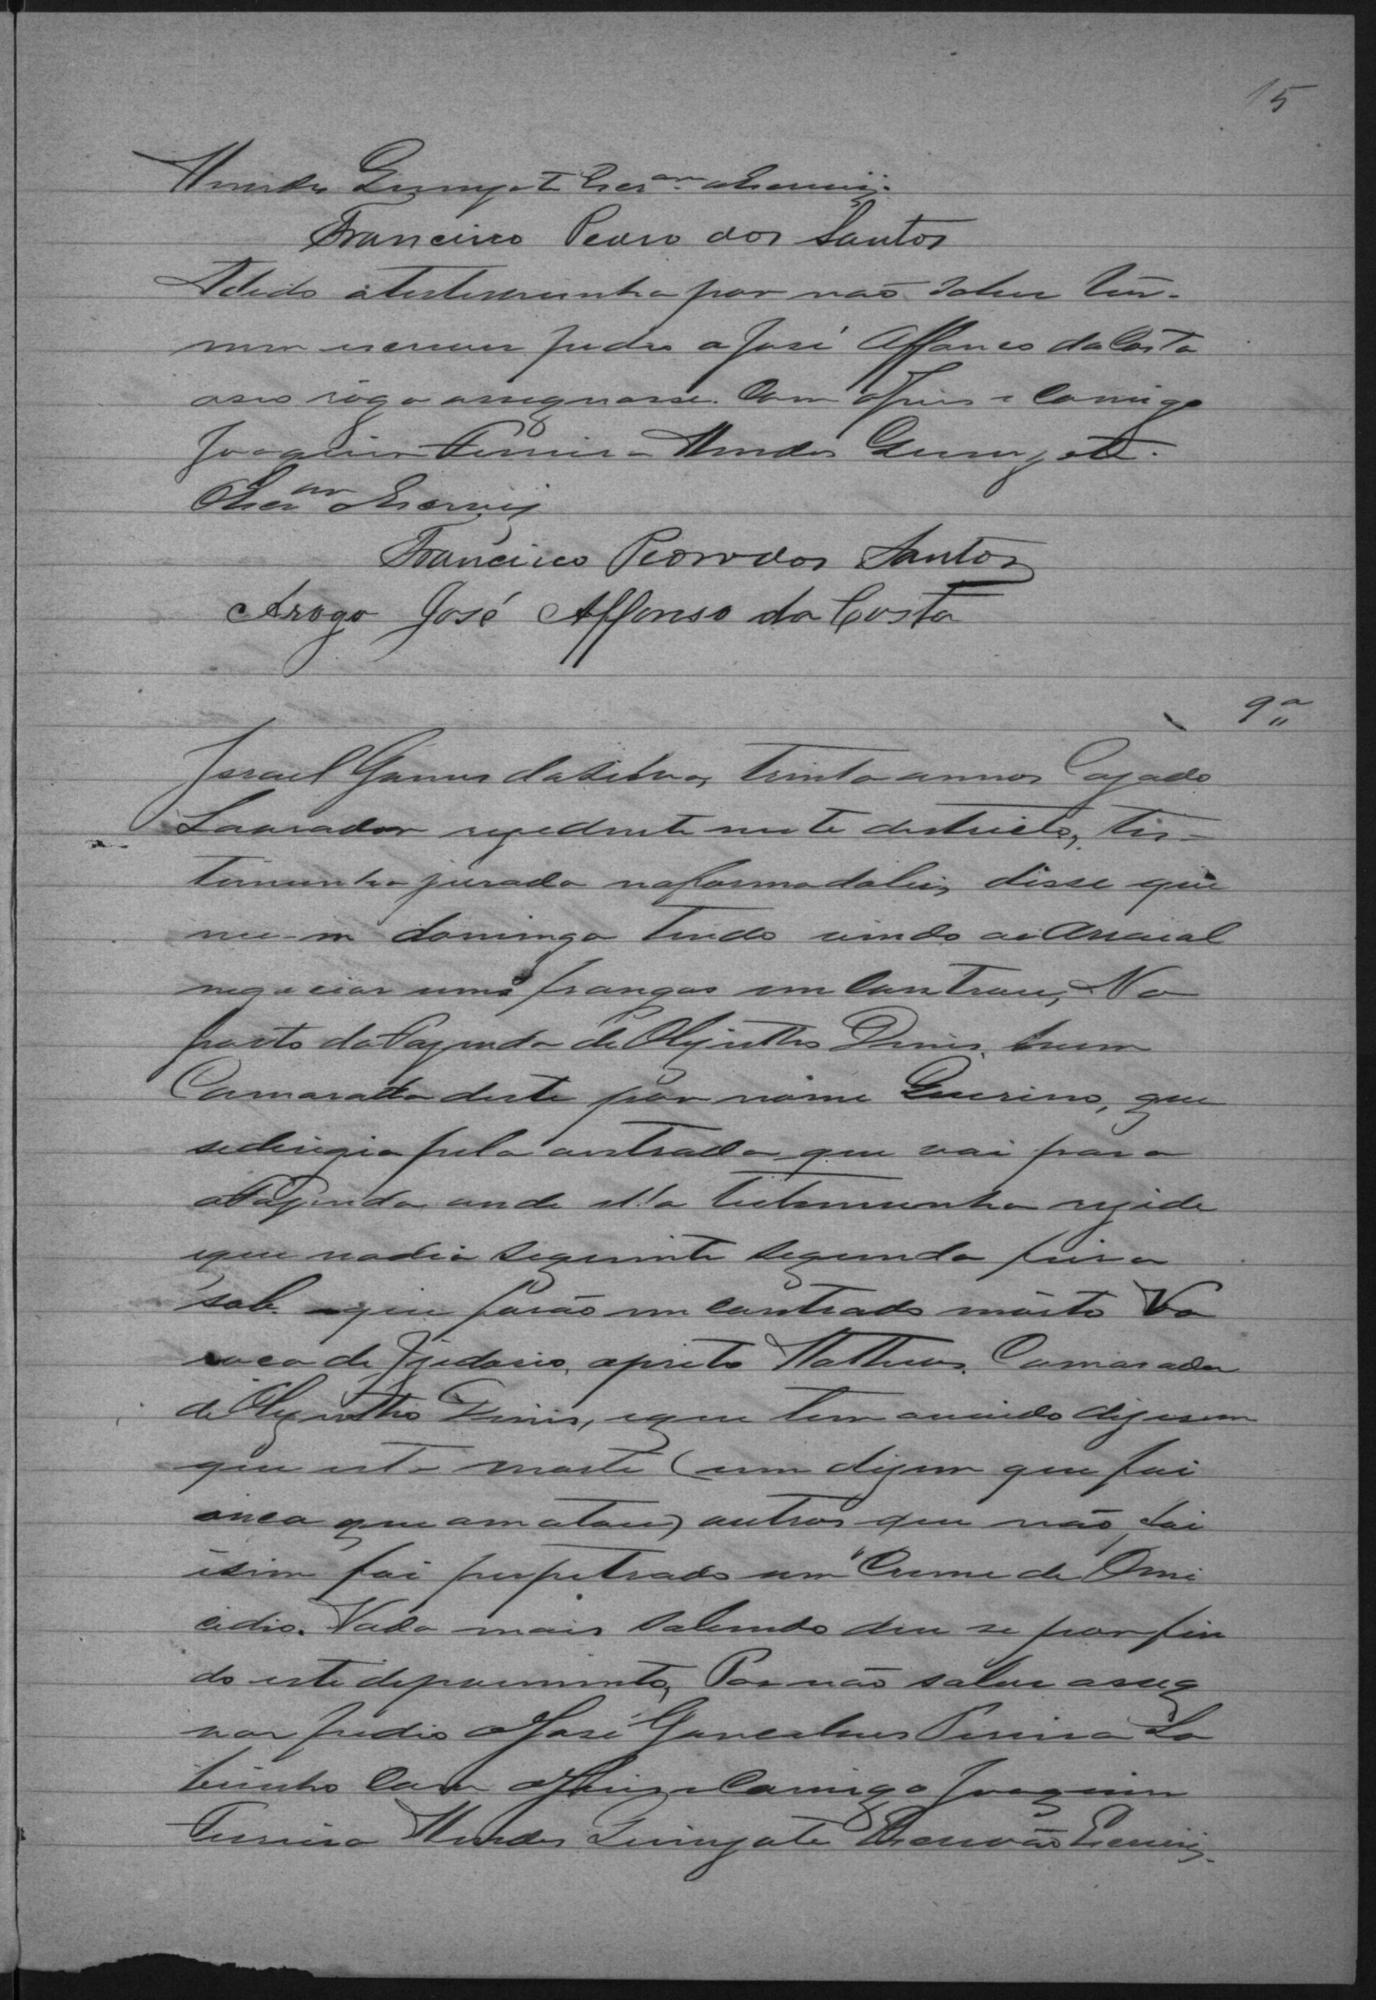 15
Mendes Escr.am o Escrevij.
Francisco Pedro dos Santos
a testemunha por não saber
nem escrever pedio a José Affonço da Costa
a seo rogo assegnasse. Com o Juis e Comigo
Joaquim Ferreira Mendes
Escr.am o Escrevij
Francisco Pedro dos Santos
Arogo José Affonso da Costa
9.a
Israel Gomes da Silva, trinta annos Cazado
Lavrador rezedente neste destricto, tes-
temunha jurada na forma da lei, disse que
em domingo tendo vindo ao Arraial
negociar uns frangos emControu, No
pasto da Fazenda de Olyntho Dinis, hum
Camarada deste por nome Guerino, que
sedirigia pela estrada que vai para
a Fazenda onde ella testemunha rezide
e que nodia seguinte segunda feira
sabe que forão emcontrado môrto Na
roça de o preto Matheus, Camarada
de Olyntho Dinis, e que tem ouvido dizerem
que esta morte (um dizem que foi
onça que o matou) outros que não, foi
e sim foi perpetrado um Crime de Omi
cidio. Nada mais sabendo deu se por fin
do este depoimento, Por não saber asseg
nar pedio a José Gonçalves Pereira So
brinho Com o Juiz e Comigo Joaquim
Ferreira Mendes Escrivão Escrevij.